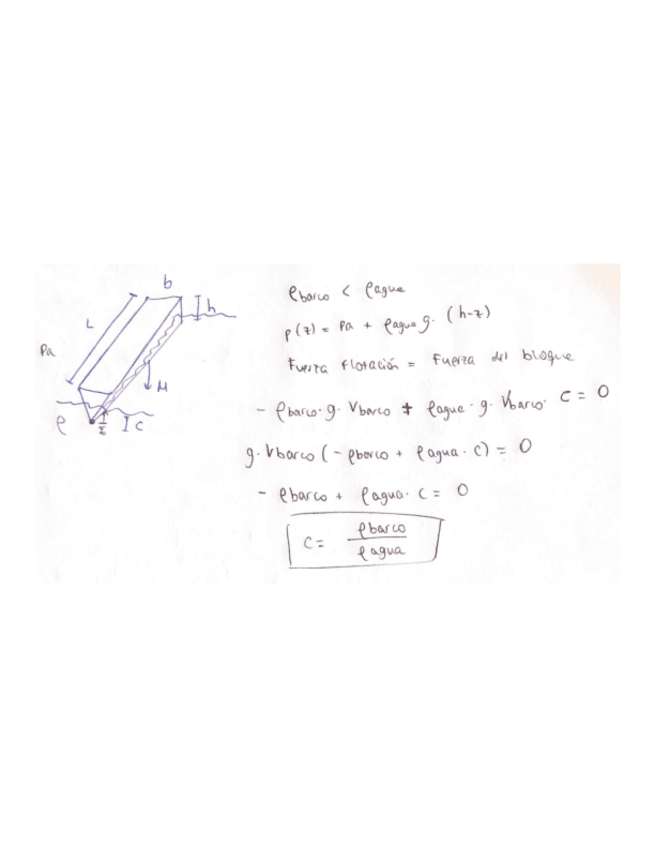 b
h
L
Pa
M
ρ
z
c
ρbarco < ρague
p(z) = Pa + ρague g. (h-z)
Fuerza Flotación = Fuerza del bloque
- ρbarco · g · Vbarco + ρague · g · Vbarco · C = 0
g · Vbarco (- ρbarco + ρagua · c) = 0
- ρbarco + ρagua · c = 0
C = ρbarco / ρagua